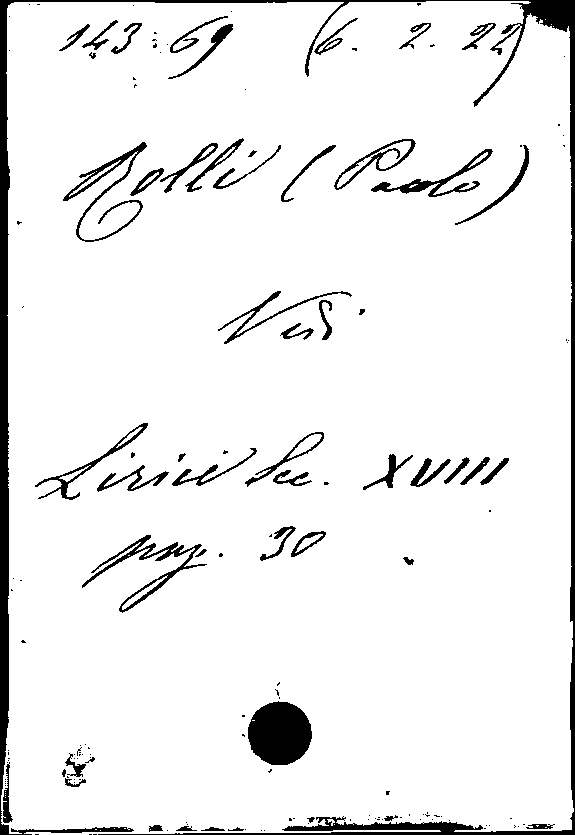 143 69 (6. 2. 22)
Rolli (Paolo)
Vedi
Lirici Sec. XVIII
pag. 30